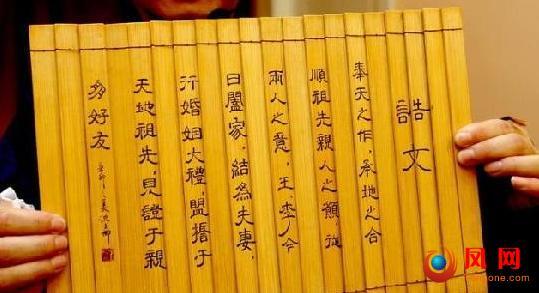 誥文
奉天之作，承地之合
順祖先親人之願，從
兩人之意，王李今
日闔家，結為夫妻，
行婚姻大禮，盟誓于
天地祖先，見證于親
多好友
凤网